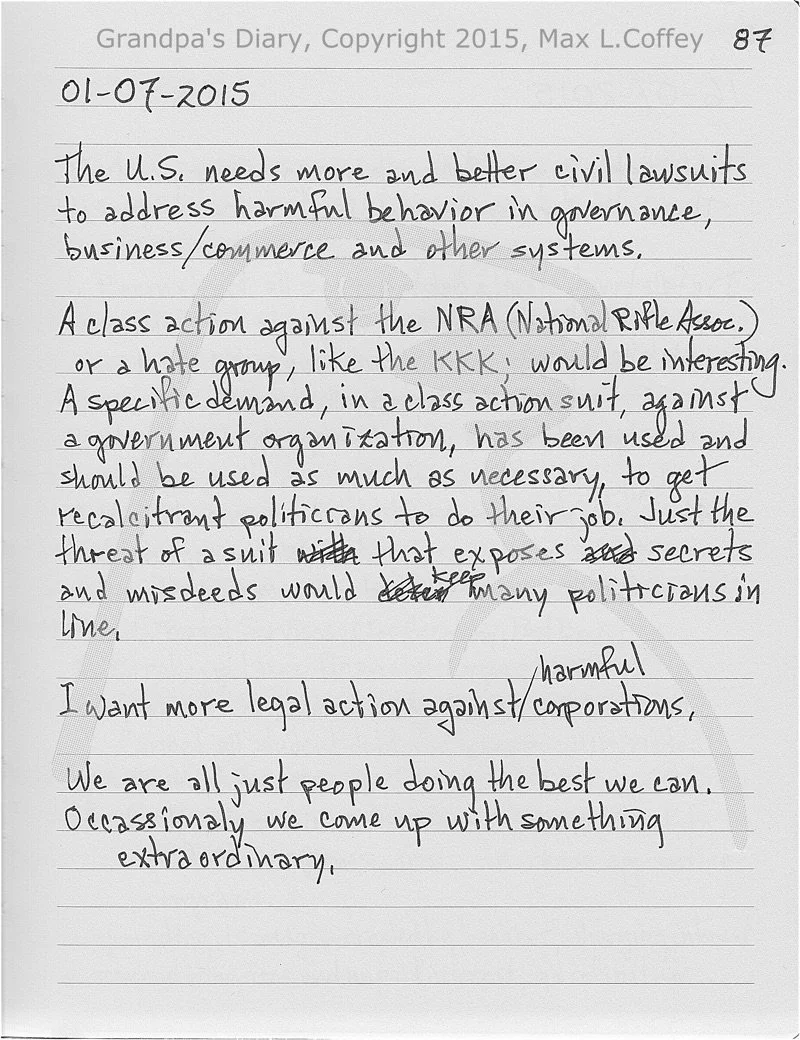 Grandpa's Diary, Copyright 2015, Max L.Coffey 87
01-07-2015
The U.S. needs more and better civil lawsuits
to address harmful behavior in governance,
business/commerce and other systems.
A class action against the NRA (National Rifle Assoc.)
or a hate group, like the KKK; would be interesting.
A specific demand, in a class action suit, against
a government organization, has been used and
should be used as much as necessary, to get
recalcitrant politicians to do their job. Just the
threat of a suit that exposes secrets
and misdeeds would keep many politicians in
line.
I want more legal action against/harmful corporations.
We are all just people doing the best we can.
Occassionaly we come up with something
extraordinary.